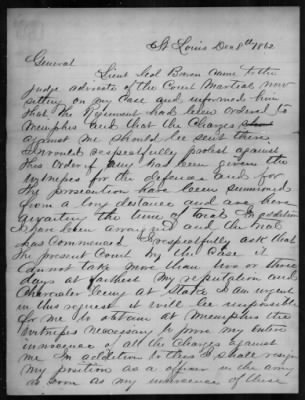 St Louis Dec 8th 1862
General
Lieut Leol Baron came to the
Judge advocate of the Court Martial now
setting on my Case and informed him
that the Regiment had been ordered to
Memphis and that the Charges
against me should be sent there
I would respectfully protest against
this Order if any had been given the
witnesses for the defense and for
the prosecution have been summoned
from a long distance and are here
awaiting the time of trial In addition
I have been arraigned and the trial
has Commenced I respectfully ask that
the present Court try the Case it
cannot take more than two or three
days at farthest My reputation and
Character being at Stake I am urgent
in this request it will be impossible
for me to obtain at Memphis the
witnesses necessary to prove my entire
innocence of all the Charges against
me In addition to this I shall resign
my position as a officer in the army
as soon as my innocence of these